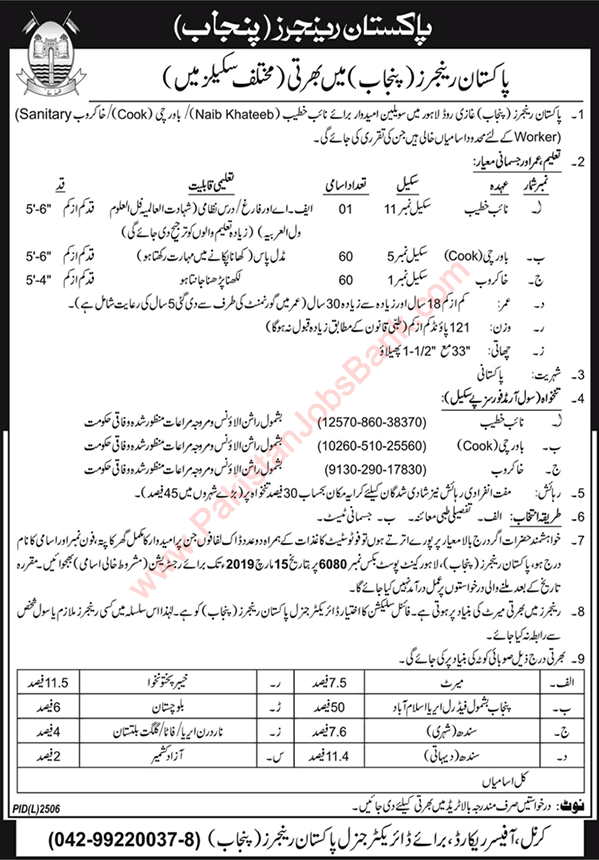 پاکستان رینجرز (پنجاب)
پاکستان رینجرز (پنجاب) میں بھرتی (مختلف سکیلز میں)
1۔ پاکستان رینجرز (پنجاب) غازی روڈ لاہور میں سویلین امیدوار برائے نائب خطیب (Naib Khateeb)/ باورچی (Cook)/ خاکروب (Sanitary
Worker) کے لئے محدود اسامیاں خالی ہیں جن کی تقرری کی جائے گی۔
2۔ تعلیم، عمر اور جسمانی معیار:
نمبر شمار عہدہ سکیل تعداد اسامی تعلیمی قابلیت قد
ا۔ نائب خطیب سکیل نمبر 11 01 ایف۔اے اور فارغ/ درس نظامی (شہادت العالمیہ فی العلوم قد کم از کم "6-'5
ول العربیہ) (زیادہ تعلیم والوں کو ترجیح دی جائے گی)
ب۔ باورچی (Cook) سکیل نمبر 5 60 مڈل پاس (کھانا پکانے میں مہارت رکھتا ہو) قد کم از کم "6-'5
ج۔ خاکروب سکیل نمبر 1 60 لکھنا پڑھنا جانتا ہو قد کم از کم "4-'5
د۔ عمر: کم از کم 18 سال اور زیادہ سے زیادہ 30 سال (عمر میں گورنمنٹ کی طرف سے دی گئی 5 سال کی رعایت شامل ہے)۔
ر۔ وزن: 121 پاؤنڈ کم از کم (طبی قانون کے مطابق زیادہ قبول نہ ہوگا)
ز۔ چھاتی: "33 مع "1-1/2 پھیلاؤ
3۔ شہریت: پاکستانی
4۔ تنخواہ (سول آرمڈ فورسز پے سکیل):
ا۔ نائب خطیب (12570-860-38370) بشمول راشن الاؤنس و مروجہ مراعات منظور شدہ وفاقی حکومت
ب۔ باورچی (Cook) (10260-510-25560) بشمول راشن الاؤنس و مروجہ مراعات منظور شدہ وفاقی حکومت
ج۔ خاکروب (9130-290-17830) بشمول راشن الاؤنس و مروجہ مراعات منظور شدہ وفاقی حکومت
5۔ رہائش: مفت انفرادی رہائش نیز شادی شدگان کیلئے کرایہ مکان بحساب 30 فیصد تنخواہ پر (بڑے شہروں میں 45 فیصد)۔
6۔ طریقہ انتخاب: الف۔ تفصیلی طبی معائنہ۔ ب۔ جسمانی ٹیسٹ۔
7۔ خواہشمند حضرات اگر درج بالا معیار پر پورے اترتے ہوں تو فوٹوسٹیٹ کاغذات کے ہمراہ دو عدد ڈاک لفافوں جن پر امیدوار کا مکمل گھر کا پتہ، فون نمبر اور اسامی کا نام
درج ہو، پاکستان رینجرز (پنجاب)، لاہور کینٹ پوسٹ بکس نمبر 6080 پر بتاریخ 15 مارچ 2019ء تک برائے رجسٹریشن (مشروط خالی اسامی) بھجوائیں۔ مقررہ
تاریخ کے بعد ملنے والی درخواستوں پر عمل درآمد نہیں کیا جائے گا۔
8۔ رینجرز میں بھرتی میرٹ کی بنیاد پر ہوتی ہے۔ فائنل سلیکشن کا اختیار ڈائریکٹر جنرل پاکستان رینجرز (پنجاب) کو ہے۔ لہٰذا اس سلسلہ میں کسی رینجرز ملازم یا سول شخص
سے رابطہ نہ کیا جائے۔
9۔ بھرتی درج ذیل صوبائی کوٹہ کی بنیاد پر کی جائے گی۔
الف۔ میرٹ 7.5 فیصد ر۔ خیبر پختونخوا 11.5 فیصد
ب۔ پنجاب بشمول فیڈرل ایریا اسلام آباد 50 فیصد ڑ۔ بلوچستان 6 فیصد
ج۔ سندھ (شہری) 7.6 فیصد ز۔ ناردرن ایریا/ فاٹا/ گلگت بلتستان 4 فیصد
د۔ سندھ (دیہاتی) 11.4 فیصد س۔ آزاد کشمیر 2 فیصد
کل اسامیاں
نوٹ: درخواستیں صرف مندرجہ بالا ٹریڈ میں بھرتی کیلئے دی جائیں۔
PID(L)2506
کرنل، آفیسر ریکارڈ، برائے ڈائریکٹر جنرل پاکستان رینجرز (پنجاب) (042-99220037-8)
www.PakistanJobsBank.com